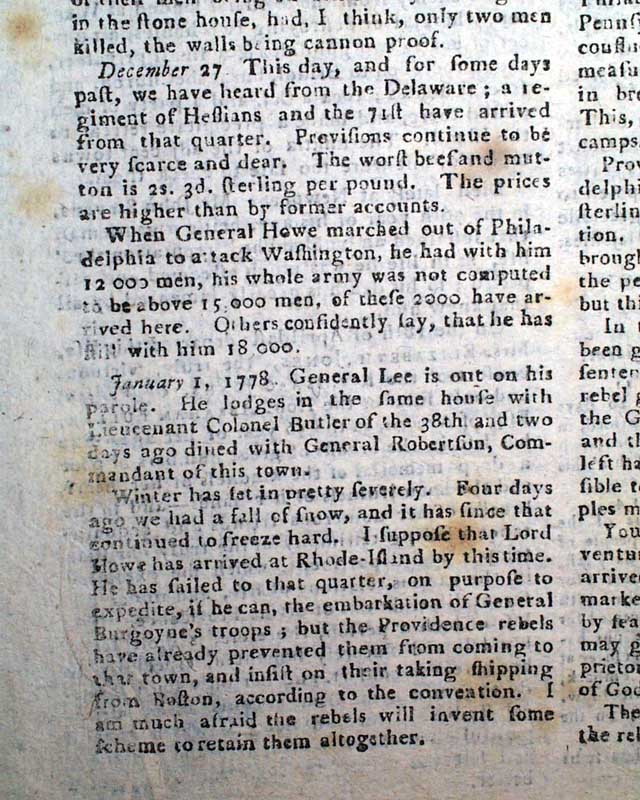 in the ſtone houſe, had, I think, only two men
killed, the walls being cannon proof.
December 27 This day, and for ſome days
paſt, we have heard from the Delaware; a re-
giment of Heſſians and the 71ſt have arrived
from that quarter. Proviſions continue to be
very ſcarce and dear. The worſt beef and mut-
ton is 2s. 3d. ſterling per pound. The prices
are higher than by former accounts.
When General Howe marched out of Phila-
delphia to attack Waſhington, he had with him
12 000 men, his whole army was not computed
to be above 15,000 men, of theſe 2000 have ar-
rived here. Others confidently ſay, that he has
ſtill with him 18 000.
January 1, 1778. General Lee is out on his
parole. He lodges in the ſame houſe with
Lieutenant Colonel Butler of the 38th and two
days ago dined with General Robertſon, Com-
mandant of this town.
Winter has ſet in pretty ſeverely. Four days
ago we had a fall of ſnow, and it has ſince that
continued to freeze hard. I ſuppoſe that Lord
Howe has arrived at Rhode-Iſland by this time.
He has ſailed to that quarter, on purpoſe to
expedite, if he can, the embarkation of General
Burgoyne's troops; but the Providence rebels
have already prevented them from coming to
that town, and inſiſt on their taking ſhipping
from Boſton, according to the convention. I
am much afraid the rebels will invent ſome
ſcheme to retain them altogether.
Pennſy
meaſu
in bre
This,
camps.
Prov
delph
ſterlin
tion.
brough
the pe
but thi
In t
been g
ſenten
rebel g
the G
and th
left ha
ſible to
ples m
You
ventu
arrive
marke
by fea
may g
prieto
of God
The
the rel